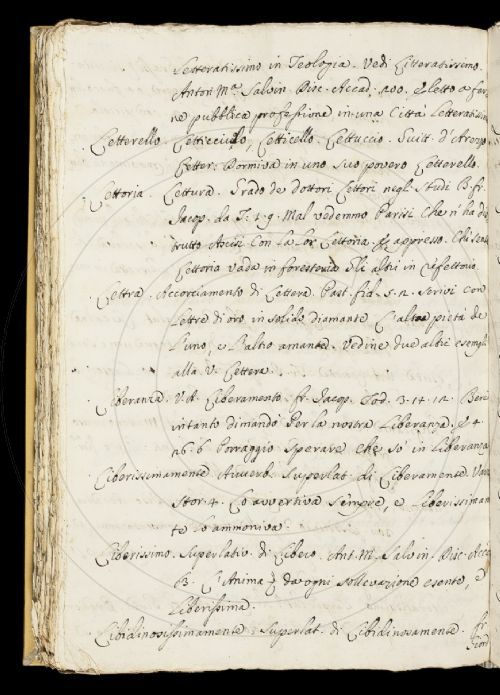 Letteratissimo in Teologia. Vedi Litteratissimo.
Anton M.ª Salvin. Disc. Accad. 100. Eletto a far-
ne pubblica professione in una Città Letteratissim
Letterello. Letticciuolo, Letticello. Lettuccio. Guitt. d'Arezzo
Letter. Dormiva in uno suo povero Letterello.
Lettoria. Lettura. Grado de dottori Lettori negl' Studi B. fr.
Jacop. da T. 1. 9. Mal vedemmo Parisi Che n'ha di-
strutto Ascisi Con la lor Lettoria. E appresso. Chi sente
Lettoria vada in foresteria Gli altri in Refettorio
Lettra. Accorciamento di Lettera. Past. fid. 5. 2. Scrivi con
Lettre di oro in solido diamante L'alta pietà de
l'uno, e l'altro amante. Vedine due altri esempli
alla V. Lettera.
Liberanza. V. A. Liberamento. fr. Jacop. Tod. 3. 14. 12. Bene
intanto dimando Per la nostra Liberanza. E 4.
26. 6 Porraggio sperare che so' in Liberanza
Liberissimamente Avverb. Superlat. di Liberamente Var
Stor. 4. Lo avvertiva sempre, e Liberissimamen
te lo ammoniva.
Liberissimo. Superlativ. di Libero. Ant. M. Salvin. Disc. Acca
B. L'Anima da ogni sollevazione esente, e
Liberissima.
Libidinosissimamente. Superlat. di Libidinosamente. fr.